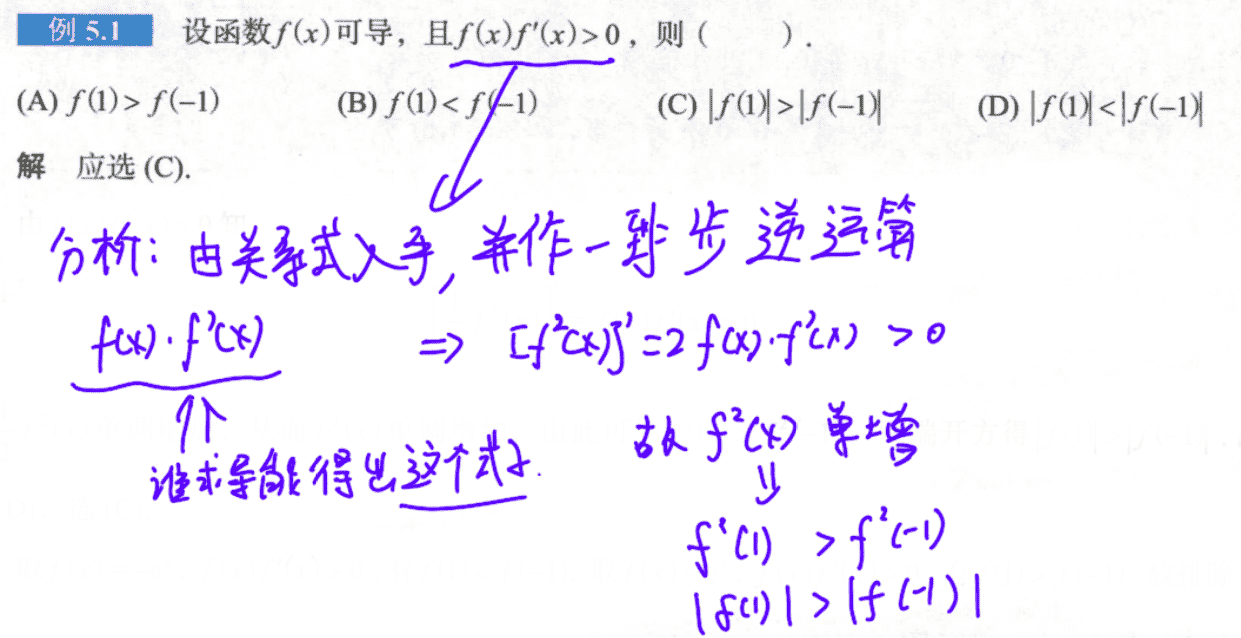 例 5.1 设函数f(x)可导，且f(x)f′(x)>0，则（ ）.
(A) f(1)>f(−1) (B) f(1)<f(−1) (C) |f(1)|>|f(−1)| (D) |f(1)|<|f(−1)|
解 应选 (C).
分析：由关系式入手，并作一步逆运算
f(x)·f'(x) ⇒ [f²(x)]'=2f(x)·f'(x) >0
故 f²(x) 单增
谁求导能得出这个式子.
f²(1) >f²(-1)
|f(1)|>|f(-1)|